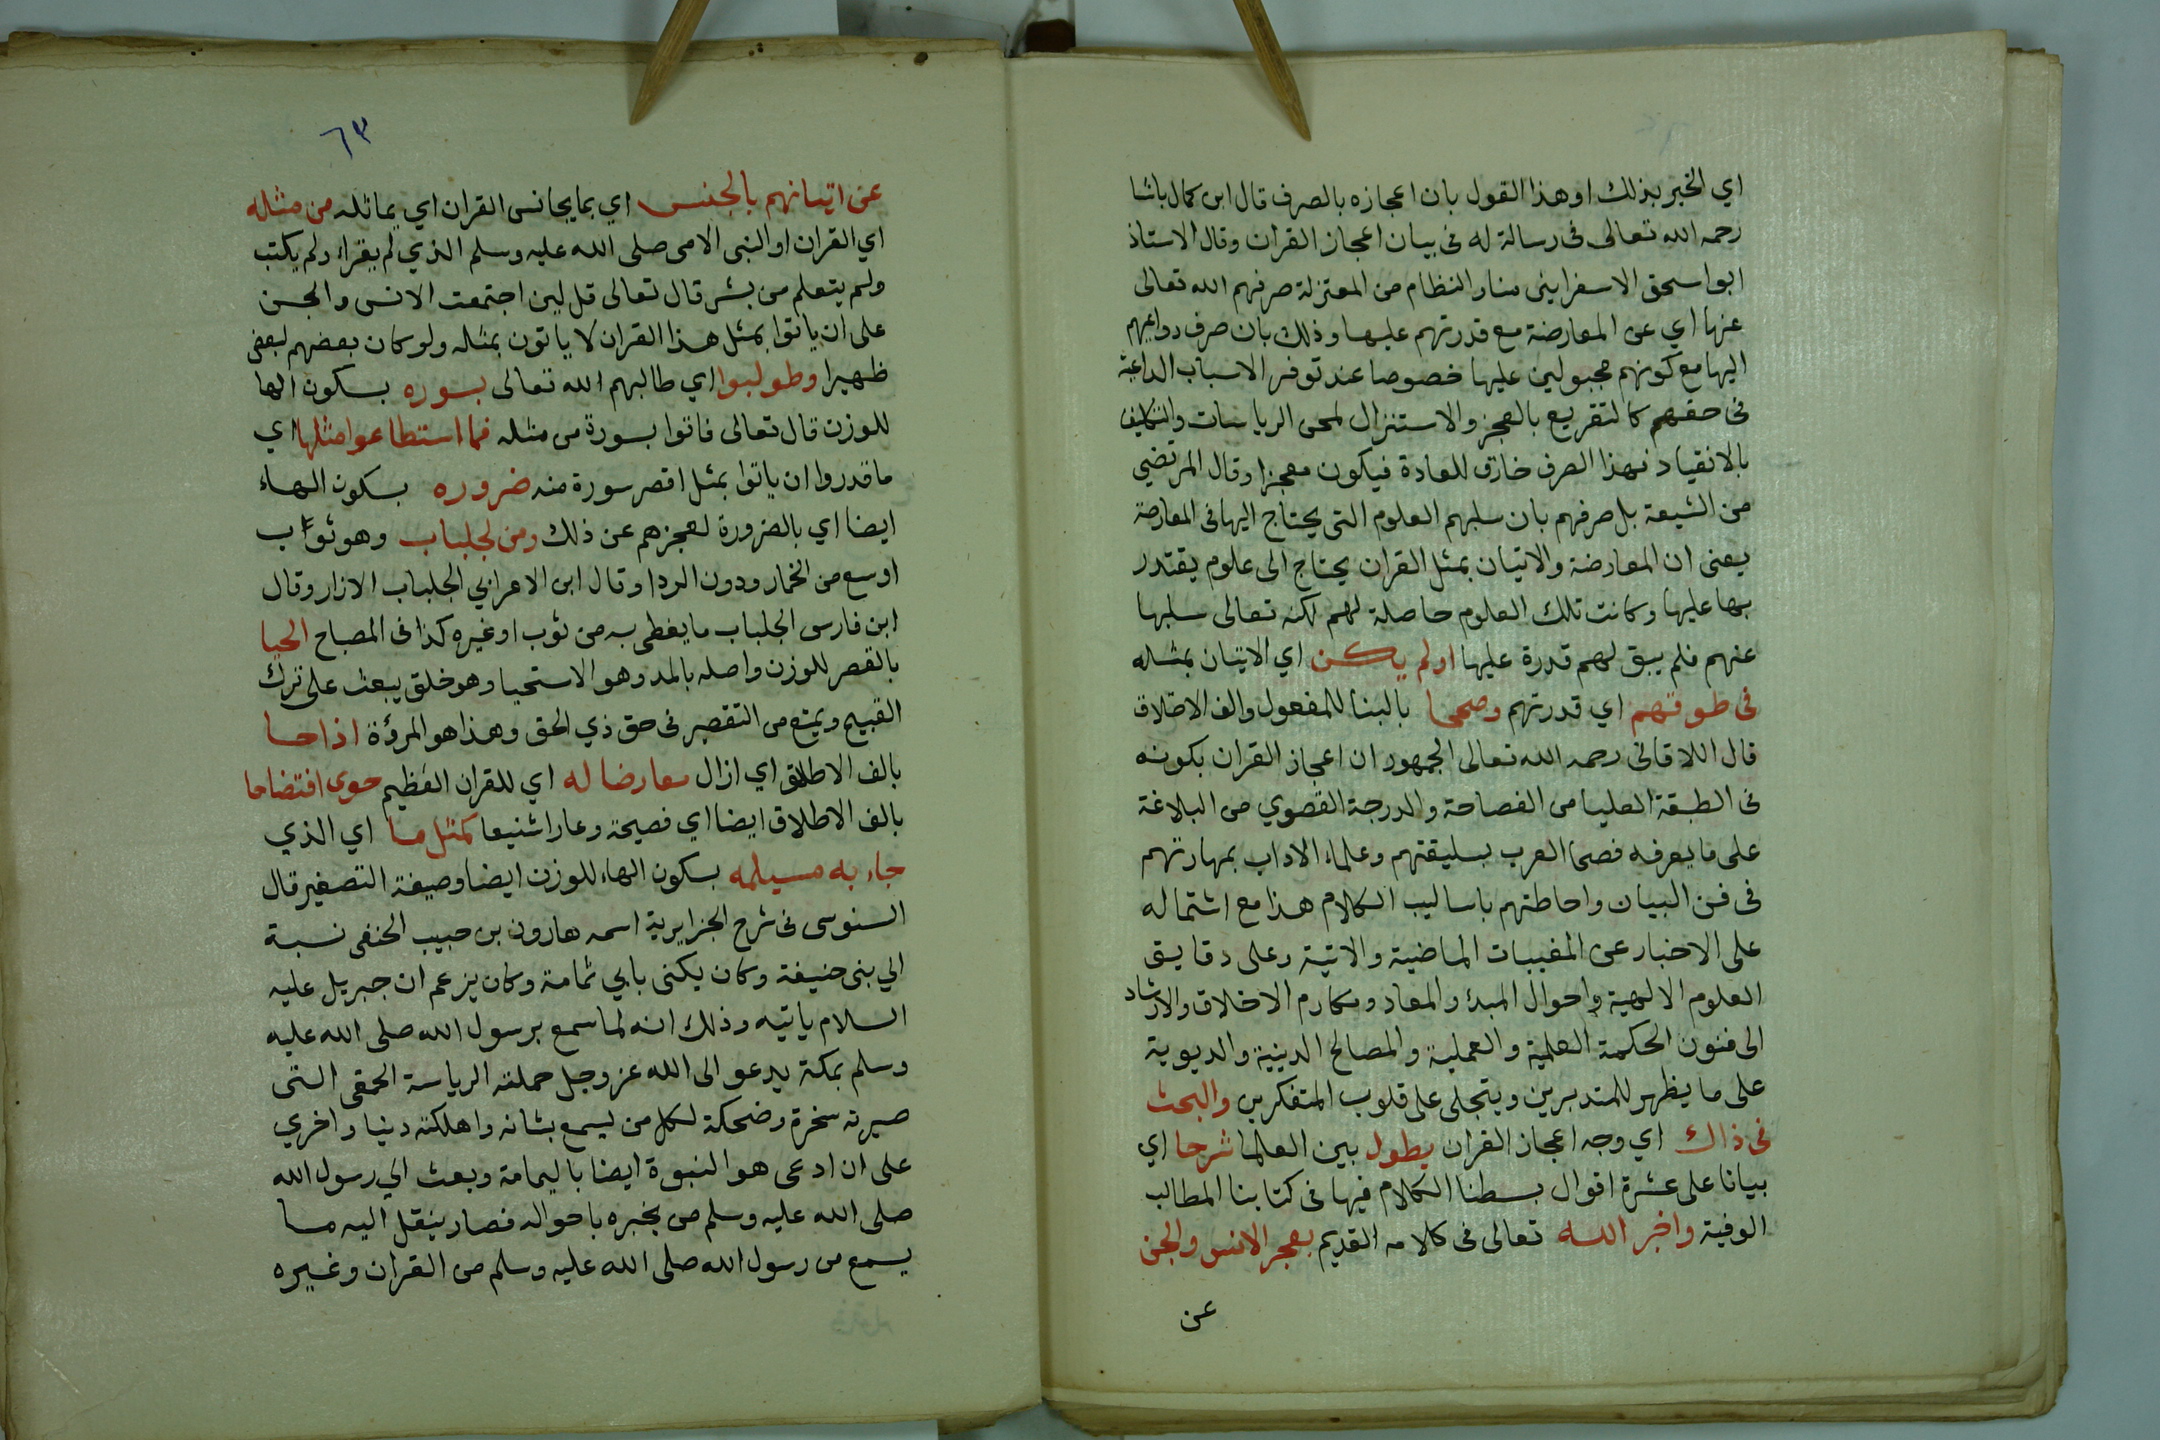 اي الخبر بذلك او هذا القول بان اعجازه بالصرف قال ابن كمال باشا
رحمه الله تعالى فى رسالة له فى بيان اعجاز القران وقال الاستاذ
ابو اسحق الاسفراينى منا والنظام من المعتزلة صرفهم الله تعالى
عنها اي عن المعارضة مع قدرتهم عليها وذلك بان صرف دواعيهم
اليها مع كونهم مجبولين عليها خصوصا عند توفر الاسباب الداعية
فى حقهم كالتقريع بالعجز والاستنزال لمحى الرياسات والتكليف
بالانقياد فهذا الصرف خارق للعادة فيكون معجزا وقال المرتضي
من الشيعة بل صرفهم بان سلبهم العلوم التى يحتاج اليها فى المعارضة
يعنى ان المعارضة والاتيان بمثل القران يحتاج الى علوم يقتدر
بها عليها وكانت تلك العلوم حاصلة لهم لكنه تعالى سلبها
عنهم فلم يبق لهم قدرة عليها او لم يكن اي الاتيان بمثله
فى طوقهم اي قدرتهم وصححا بالبنا للمفعول والف الاطلاق
قال اللاقانى رحمه الله تعالى الجمهور ان اعجاز القران بكونه
فى الطبقة العليا من الفصاحة والدرجة القصوي من البلاغة
على ما يعرفه فصحا العرب بسليقتهم وعلماء الاداب بمهارتهم
فى فن البيان واحاطتهم باساليب الكلام هذا مع اشتماله
على الاخبار عن المغيبات الماضية والاتية وعلى دقايق
العلوم الالهية واحوال المبدء والمعاد ومكارم الاخلاق والارشاد
الى فنون الحكمة العلمية والعملية والمصالح الدينية والديوية
على ما يظهر للمتدبرين ويتجلى على قلوب المتفكرين والبحث
فى ذاك اي وجه اعجاز القران يطول بين العلما شرحا اي
بيانا على عشرة اقوال بسطنا الكلام فيها فى كتابنا المطالب
الوفية واخبر الله تعالى فى كلامه القديم بعجز الانس والجن
عن
٦٣
عن اتيانهم بالجنس اي بما يجانس القران اي يماثله من مثله
اي القران او النبى الامى صلى الله عليه وسلم الذي لم يقراء ولم يكتب
ولم يتعلم من بشر قال تعالى قل لين اجتمعت الانس والجن
على ان ياتوا بمثل هذا القران لا ياتون بمثله ولو كان بعضهم لبعض
ظهيرا وطولبوا اي طالبهم الله تعالى بسوره بسكون الها
للوزن قال تعالى فاتوا بسورة من مثله فما استطاعوا مثلها اي
ما قدروا ان ياتوا بمثل اقصر سورة منه ضروره بسكون الهاء
ايضا اي بالضرورة لعجزهم عن ذلك ومن لجلباب وهو ثوب
اوسع من الخمار ودون الردا وقال ابن الاعرابي الجلباب الازار وقال
ابن فارس الجلباب ما يغطى به من ثوب او غيره كذا فى المصباح الحيا
بالقصر للوزن واصله بالمد وهو الاستحيا وهو خلق يبعث على ترك
القبيح ويمنع من التقصير فى حق ذي الحق وهذا هو المرؤة اذا حا
بالف الاطلاق اي ازال معارضا له اي للقران العظيم حوى افتضاحا
بالف الاطلاق ايضا اي فضيحة وعارا شنيعا كمثل ما اي الذي
جاء به مسيلمه بسكون الهاء للوزن ايضا وصيغة التصغير قال
السنوسى فى شرح الجزايرية اسمه هارون بن حبيب الحنفى نسبة
الي بنى حنيفة وكان يكنى بابي ثمامة وكان يزعم ان جبريل عليه
السلام ياتيه وذلك انه لما سمع برسول الله صلى الله عليه
وسلم بمكة يدعو الى الله عز وجل حملته الرياسة الحمقى التى
صيرته سخرة وضحكة لكل من يسمع بشانه واهلكته دنيا واخري
على ان ادعى هو النبوة ايضا باليمامة وبعث الي رسول الله
صلى الله عليه وسلم من يخبره باحواله فصار ينقل اليه ما
يسمع من رسول الله صلى الله عليه وسلم من القران وغيره